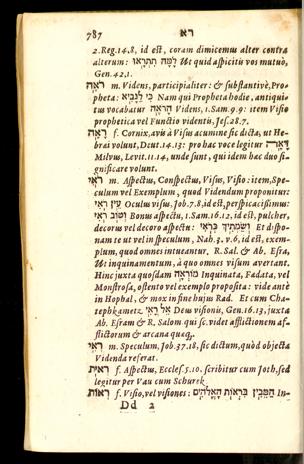 787 רא
2.Reg.14.8, id est, coram dimicemus alter contra
alterum: לָמָּה תִּתְרָאוּ Ut quid aspicitis vos mutuò,
Gen.42.1.
רֹאֶה m. Videns, participialiter: & substantivè, Pro-
pheta: כִּי לַנָּבִיא Nam qui Propheta hodie, antiqui-
tus vocabatur הָרֹאֶה Videns, 1.Sam.9.9: item Visio
prophetica vel Functio videntis, Jes.28.7.
רָאָה f. Cornix, avis à Visus acumine sic dicta, ut He-
bræi volunt, Deut.14.13: pro hac voce legitur דָּאָה
Milvus, Levit.11.14, unde sunt, qui idem hac duo si-
gnificare volunt.
רֳאִי m. Aspectus, Conspectus, Visus, Visio: item, Spe-
culum vel Exemplum, quod Videndum proponitur:
עֵין רֹאִי Oculus visus, Job.7.8, id est, perspicacissimus:
וְטוֹב רֹאִי Bonus aspectu, 1.Sam.16.12, id est, pulcher,
decorus vel decoro aspectu: וְשַׂמְתִּיךְ כְּרֹאִי Et dispo-
nam te ut vel in speculum, Nah.3.v.6, id est, exem-
plum, quod omnes intueantur. R.Sal. & Ab. Esra,
Ut inquinamentum, à quo omnes visum avertant.
Hinc juxta quosdam מוֹרְאָה Inquinata, Fœdata, vel
Monstrosa, ostento vel exemplo proposita: vide antè
in Hophal, & mox in fine hujus Rad. Et cum Cha-
tephkametz. אֵל רֳאִי Deus visionis, Gen.16.13, juxta
Ab. Esram & R. Salom qui sc. videt afflictionem af-
flictorum & arcana quæq;.
רְאִי m. Speculum, Job.37.18, sic dictum, quòd objecta
Videnda referat.
רְאִית f. Aspectus, Eccles.5.10. scribitur cum Joth, sed
legitur per Vau cum Schurek.
רְאוֹת f. Visio, vel visiones: הַמֵּבִין בִּרְאוֹת הָאֱלֹהִים In-
Dd 2